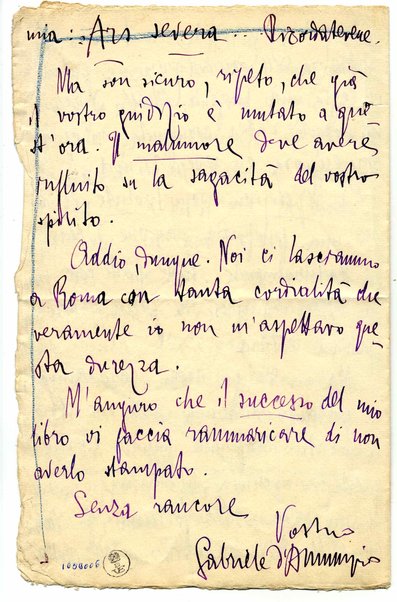 mia: Ars severa. Ricordatevene.
Ma son sicuro, ripeto, che già
il vostro giudizio è mutato a que-
st'ora. Il malumore deve avere
influito su la sagacità del vostro
spirito.
Addio, dunque. Noi ci lasciammo
a Roma con tanta cordialità che
veramente io non m'aspettavo que-
sta durezza.
M'auguro che il successo del mio
libro vi faccia rammaricare di non
averlo stampato.
Senza rancore
Vostro
Gabriele d'Annunzio